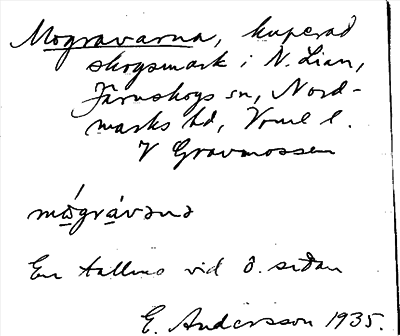 Mogravarna, kuperad
skogsmark i N. Lian,
Järnskogs sn, Nord-
marks hd, Vrml l.
V Gravmossen
mógrávəna
En tallmo vid ö. sidan
E. Andersson 1935.